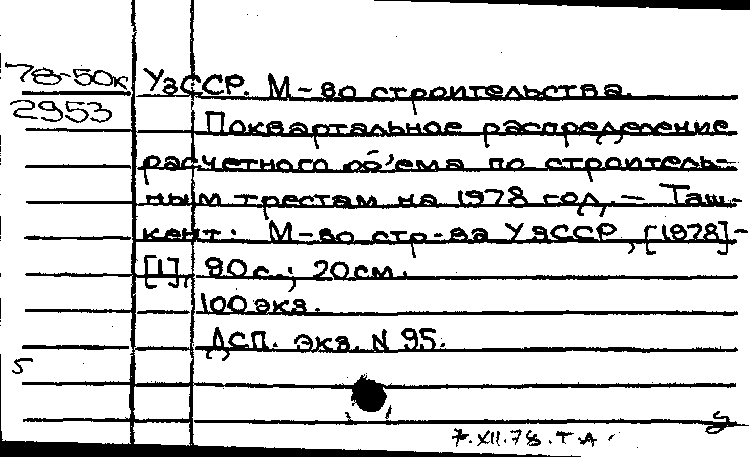 78-50к УзССР. М-во строительства.
2953
Поквартальное распределение
расчетного об'ема по строитель-
ным трестам на 1978 год. — Таш-
кент: М-во стр-ва УзССР, [1978]-
[1], 90 с.; 20 см.
100 экз.
ДСП. Экз. N 95.
5
7.XII.78. Т.А.